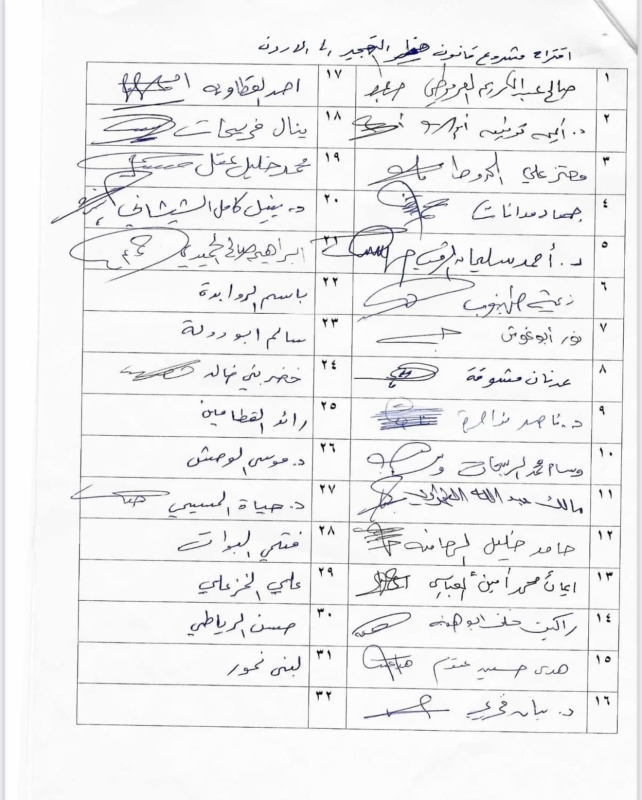 اقتراح مشروع قانون حظر التهجير الى الاردن
١ صالح عبدالكريم العرموطي
٢ د. اليمه
٣ معتز
٤ جهاد مدانات
٥ د. أحمد سليمان الرقب
٦
٧ نور أبوغوش
٨ عدنان مشوقة
٩ د. ناصر نواصرة
١٠ وسام محمد الربيحات
١١ مالك عبد الله الطهراوي
١٢ حامد خليل الرحامنه
١٣ ايمان محمد أمين العباسي
١٤ راكين خلف ابوهنيه
١٥ هدى حسين عتوم
١٦ د. بيان
١٧ احمد القطاونه
١٨ ينال فريحات
١٩ محمد خليل عقل
٢٠ د. نبيل كامل الشيشاني
٢١ ابراهيم صالح
٢٢ باسم الروابدة
٢٣ سالم ابو دولة
٢٤ خضر بني خالد
٢٥ رائد القطامين
٢٦ د. موسى الوحش
٢٧ د. حياة المسيمي
٢٨ فتحي البوات
٢٩ علي الخزعلي
٣٠ حسن الرياطي
٣١ لبنى نمور
٣٢